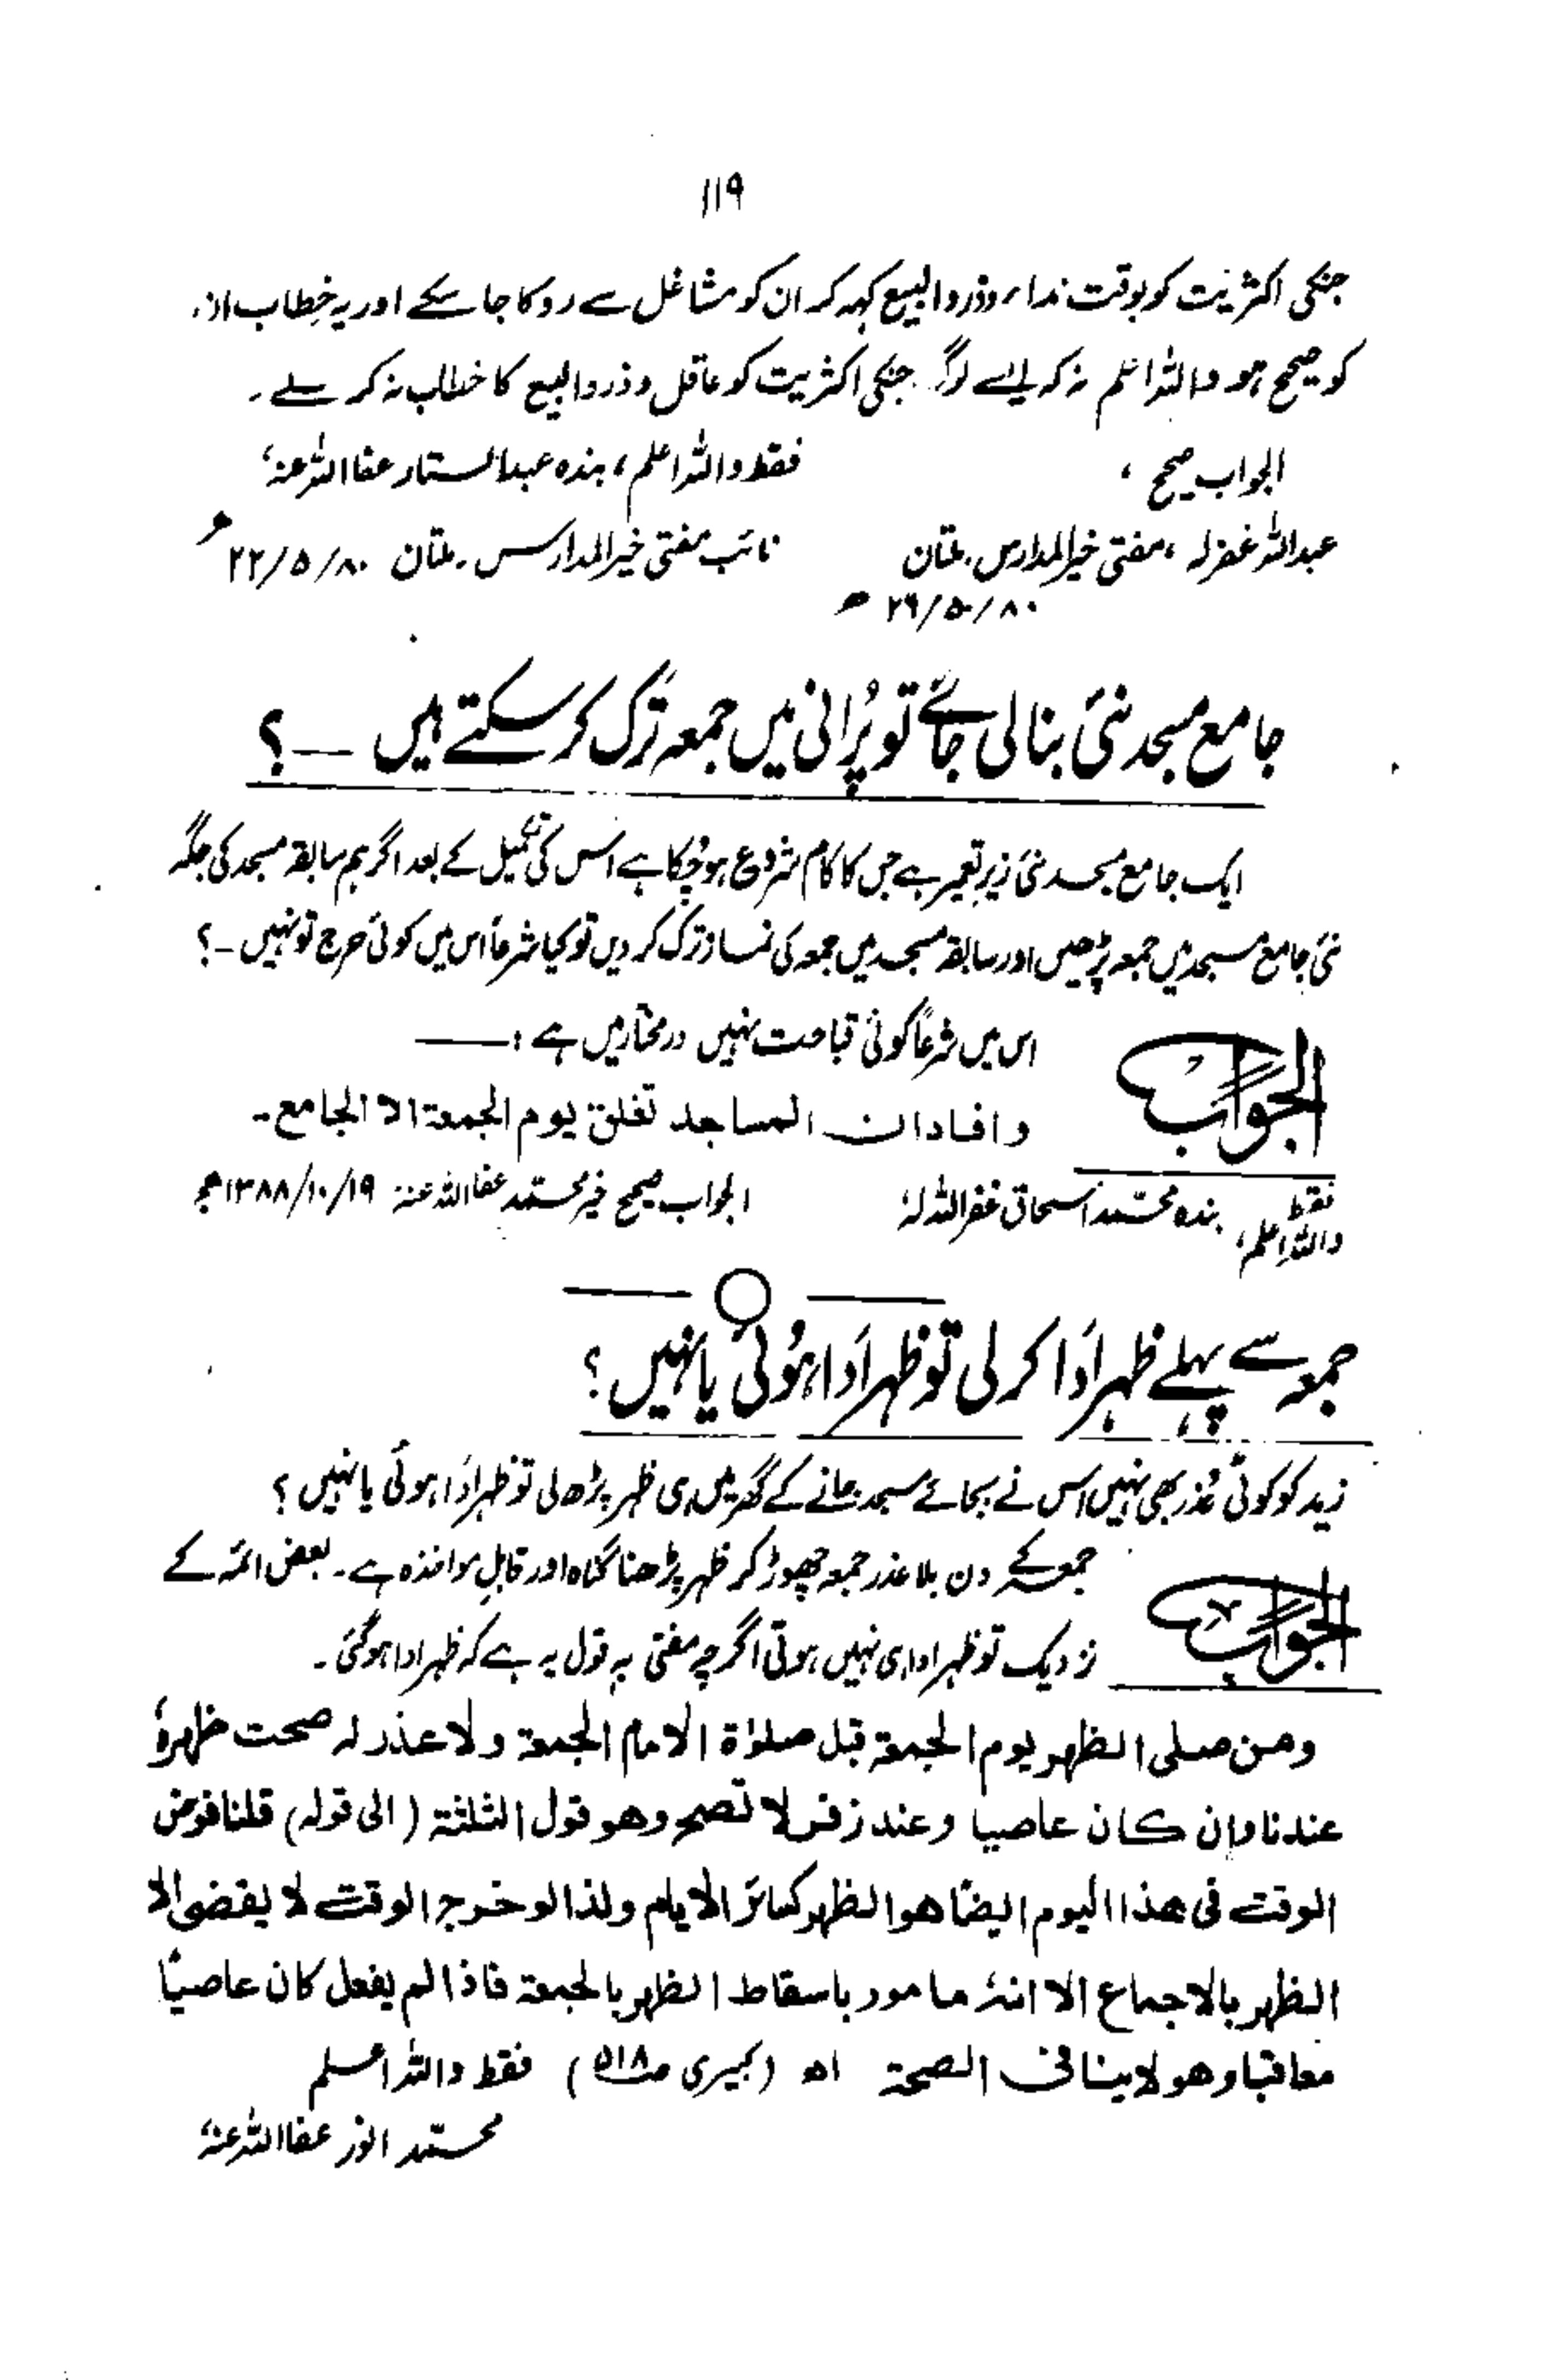 ۱۱۹
جنکی اکثریت کو بوقت نداء وذروالبیع کہہ کر ان کو مشاغل سے روکا جا سکے اور یہ خطاب ان
کو صحیح ہو واللہ اعلم نہ کہ ایسے لوگ جنکی اکثریت کو عاقل وذروالبیع کا خطاب نہ کر سکے۔
الجواب صحیح ، فقط واللہ اعلم ، بندہ عبدالستار عفا اللہ عنہ
عبداللہ غفرلہ ، مفتی خیرالمدارس ، ملتان نائب مفتی خیرالمدارس ۔ ملتان ۲۲/۵/۸۰ ھ
۲۶/۵/۸۰ ھ
جامع مسجد نئی بنالی جائے تو پُرانی میں جمعہ ترک کر سکتے ہیں ـــ ؟
ایک جامع مسجد نئی زیرِ تعمیر ہے جس کا کام شروع ہو چُکا ہے اس کی تکمیل کے بعد اگر ہم سابقہ مسجد کی جگہ
نئی جامع مسجد میں جمعہ پڑھیں اور سابقہ مسجد میں جمعہ کی نماز ترک کر دیں تو کیا شرعاً اس میں کوئی حرج تو نہیں ـ ؟
الجواب اس میں شرعاً کوئی قباحت نہیں درمختار میں ہے :ـــــ
وافاد ان المساجد تغلق یوم الجمعۃ الا الجامع ـ
فقط واللہ اعلم ، بندہ محمد اسحاق غفراللہ لہٗ الجواب صحیح خیر محمد عفا اللہ عنہ ۱۳۸۸/۱۰/۱۹ھ
جمعہ سے پہلے ظہر اَدا کر لی تو ظہر اَدا ہُوئی یا نہیں ؟
زید کو کوئی عُذر بھی نہیں اس نے بجائے مسجد جانے کے گھر میں ہی ظہر پڑھ لی تو ظہر اَدا ہوئی یا نہیں ؟
الجواب جمعہ کے دن بلا عذر جمعہ چھوڑ کر ظہر پڑھنا گناہ اور قابلِ مواخذہ ہے ۔ بعض ائمہ کے
نزدیک تو ظہر ادا ہی نہیں ہوتی اگرچہ مفتی بہ قول یہ ہے کہ ظہر ادا ہو گئی ۔
ومن صلی الظہر یوم الجمعۃ قبل صلوٰۃ الامام الجمعۃ ولا عذر لہ صحت ظہرہٗ
عندنا وان کان عاصیا وعند زفر لا تصح وھو قول الثلثۃ (الی قولہ) قلنا فرض
الوقت فی ھذا الیوم ایضًا ھو الظہر کسائر الایام ولذا لو خرج الوقت لا یقضی الا
الظہر بالاجماع الا انہٗ مامور باسقاط الظہر بالجمعۃ فاذا لم یفعل کان عاصیًا
معاقبا وھو لا ینافی الصحۃ اھ (کبیری ص۵۱۸) فقط واللہ اعلم
محمد انور عفا اللہ عنہٗ